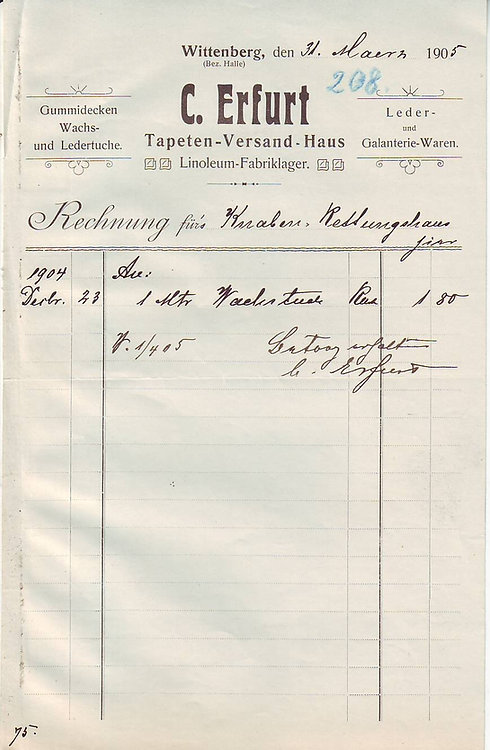 Wittenberg, den 31. Maerz 1905
(Bez. Halle)
208.
C. Erfurt
Tapeten-Versand-Haus
Linoleum-Fabriklager.
Gummidecken
Wachs-
und Ledertuche.
Leder-
und
Galanterie-Waren.
Rechnung für's Knaben-Rettungshaus
hier
1904 An:
Dezbr. 23 1 Mtr Wachstuch 1 80
V. 1/4 05 Betrag erhalten
C. Erfurt
75.